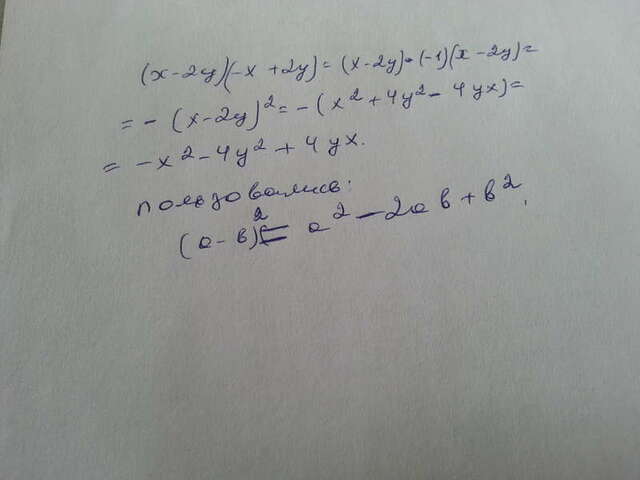 (x-2y)(-x+2y)=(x-2y)•(-1)(x-2y)=
=-(x-2y)²=-(x²+4y²-4yx)=
=-x²-4y²+4yx.
пользовались:
(a-b)²=a²-2ab+b².